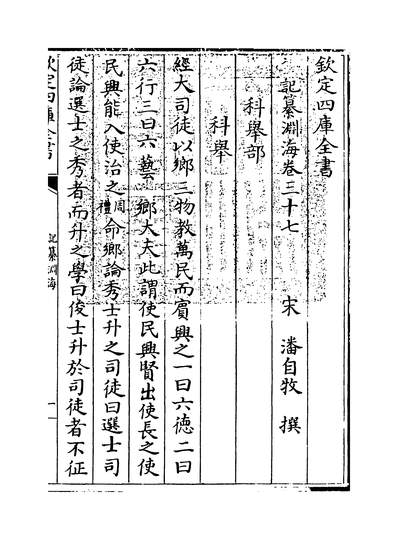 欽定四庫全書
記纂淵海卷三十七
宋 潘自牧 撰
科舉部
科舉
經大司徒以鄉三物教萬民而賓興之一曰六德二曰
六行三曰六藝 鄉大夫此謂使民興賢出使長之使
民興能入使治之周禮命鄉論秀士升之司徒曰選士司
徒論選士之秀者而升之學曰俊士升於司徒者不征
欽定四庫全書
記纂淵海
一